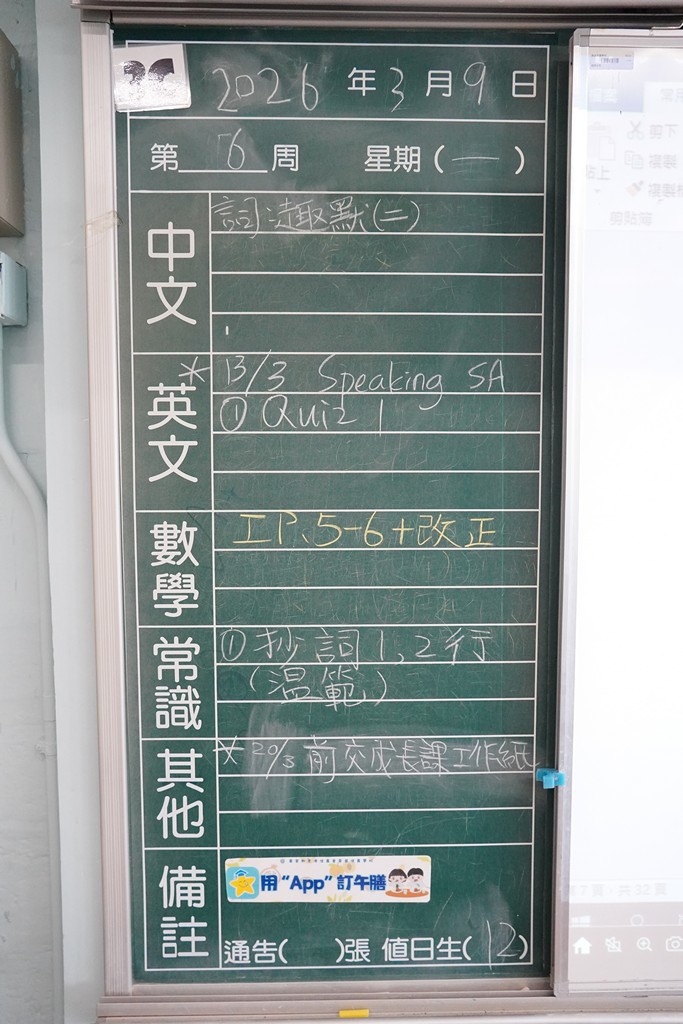 2026 年 3 月 9 日
第 6 周 星期(一)
中文
詞 趣默(二)
英文
* 13/3 Speaking SA
① Quiz 1
數學
工 P.5-6+改正
常識
① 抄詞1,2行
(溫範)
其他
* 20/3 前交成長課工作紙
備註
用“App”訂午膳
通告( )張 值日生(12)
剪下
複製
貼上
剪貼簿